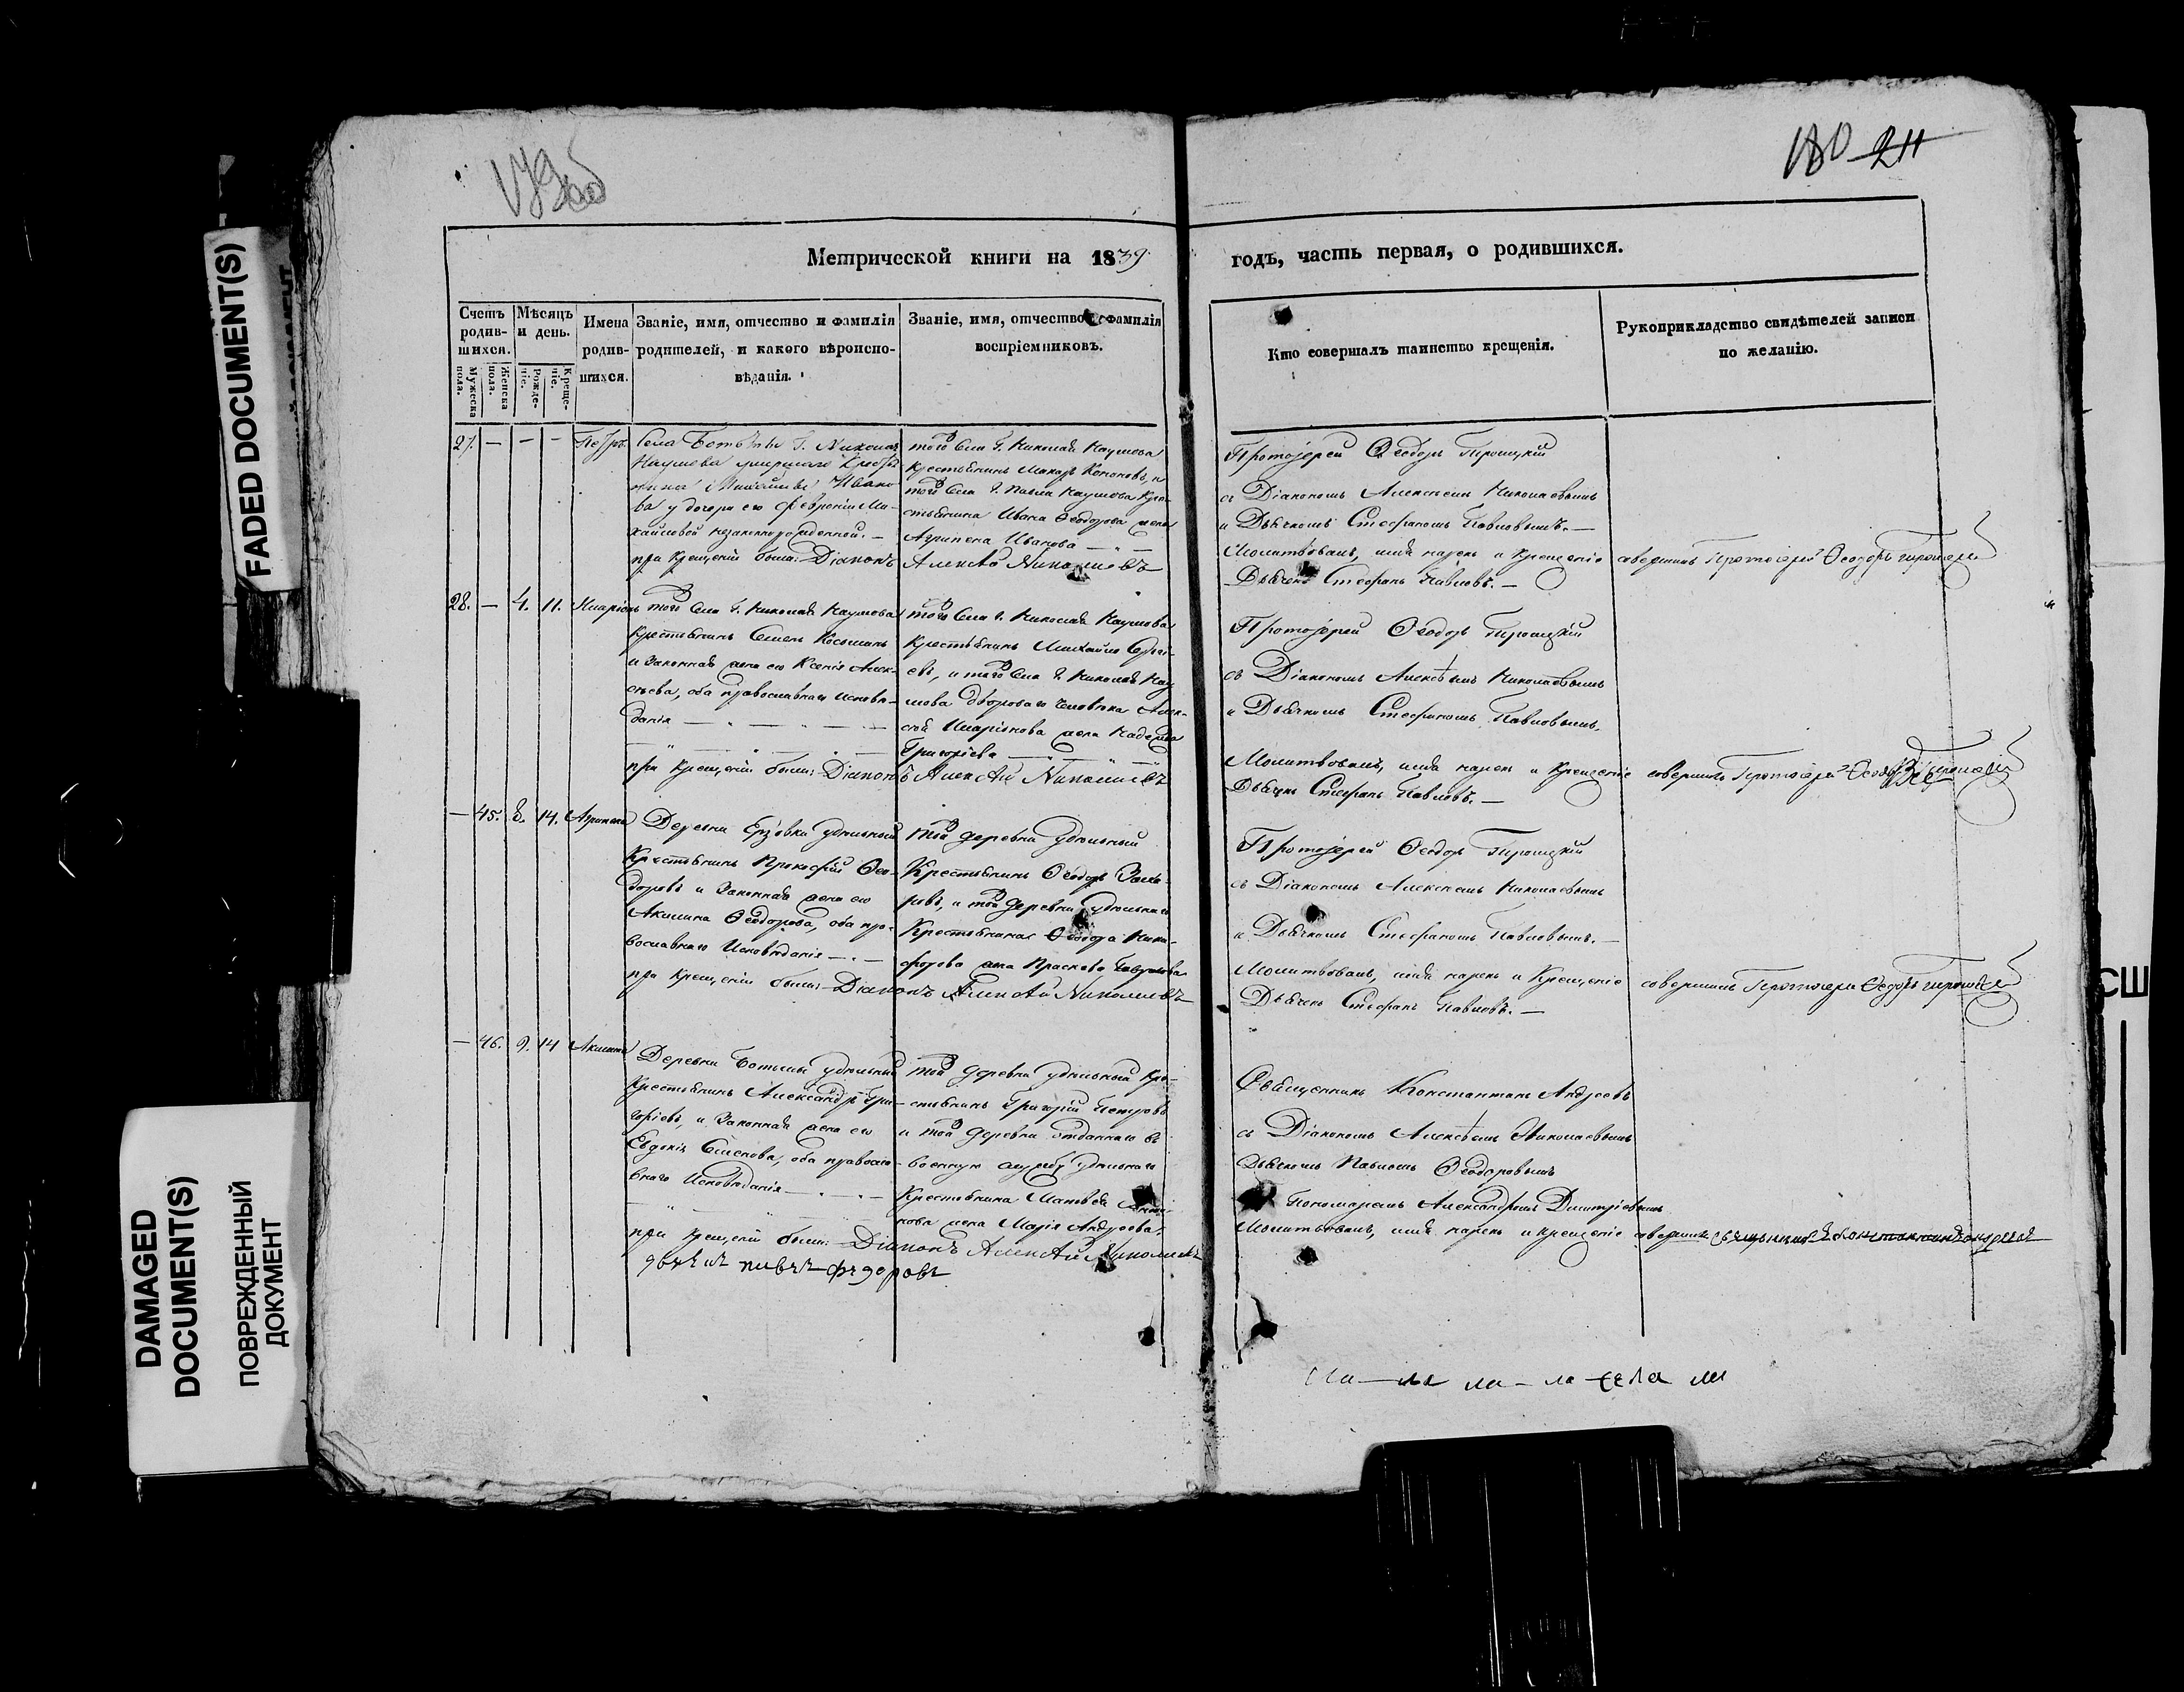 FADED DOCUMENT(S)
DAMAGED
DOCUMENT(S)
ПОВРЕЖДЕННЫЙ
ДОКУМЕНТ
180 211
Метрической книги на 1839
годъ, часть первая, о родившихся.
Счетъ родив-шихся.
Мужеска пола.
Женска пола.
Мѣсяцъ и день.
Рожде-ніе.
Креще-ніе.
Имена родив-шихся.
Званіе, имя, отчество и фамилія
родителей, и какого вѣроиспо-
вѣданія.
Званіе, имя, отчество и фамилія
воспріемниковъ.
Кто совершалъ таинство крещенія.
Рукоприкладство свидѣтелей записи
по желанію.
27. — — — Петръ
Села Г. Николая
Наумова умершаго Кресть
янина Михайлы Ивано
ва у дочери его Февроніи Ми-
хайловой незаконнорожденной. —
при Крещеніи были: Діаконъ Алексѣй Николаевъ
того Села Г. Николая Наумова
Крестьянинъ Макаръ Кононовъ, и
того Села Г. Павла Наумова Кре-
стьянина Ивана Ѳеодорова жена
Агрипена Иванова
Протоіерей Ѳеодоръ Троицкій
съ Діакономъ Алексѣемъ Николаевымъ
и Дьячкомъ Стефаномъ Павловымъ. —
Молитвовалъ, имя нарекъ и Крещеніе совершилъ Протоіерей Ѳеодоръ Троицкій
Дьячекъ Стефанъ Павловъ. —
28. — 4. 11. Иларіонъ
того Села Г. Николая Наумова
Крестьянинъ Семенъ Косьминъ
и Законная жена его Ксенія Алек-
сѣева, оба православнаго исповѣ-
данія
при Крещеніи были: Діаконъ Алексѣй Николаевъ
того Села Г. Николая Наумова
Крестьянинъ Михайло Сергі-
евъ, и того Села Г. Николая Нау
мова двороваго человѣка Алек-
сѣя Иларіонова жена Надежда
Григоріева
Протоіерей Ѳеодоръ Троицкій
съ Діакономъ Алексѣемъ Николаевымъ
и Дьячкомъ Стефаномъ Павловымъ.
Молитвовалъ, имя нарекъ и Крещеніе совершилъ Протоіерей Ѳеодоръ Троицкій
Дьячекъ Стефанъ Павловъ. —
— 45. 8. 14. Агрипена
Деревни Ерзовки удѣльный
Крестьянинъ Прокофій Ѳео-
доровъ и Законная жена его
Акилина Ѳеодорова, оба пра-
вославнаго Исповѣданія
при Крещеніи были: Діаконъ Алексѣй Николаевъ
той деревни удѣльный
Крестьянинъ Ѳеодоръ Заха-
ровъ, и той деревни удѣльнаго
Крестьянина Ѳеодора Ники-
форова жена Прасковья Гаврилова
Протоіерей Ѳеодоръ Троицкій
съ Діакономъ Алексѣемъ Николаевымъ
и Дьячкомъ Стефаномъ Павловымъ. —
Молитвовалъ, имя нарекъ и Крещеніе совершилъ Протоіерей Ѳеодоръ Троицкій
Дьячекъ Стефанъ Павловъ. —
— 46. 9. 14 Акилина
Деревни удѣльный
Крестьянинъ Александръ Гри-
горіевъ, и Законная жена его
Евдокія Семенова, оба правосла-
внаго Исповѣданія
при крещеніи были: Діаконъ Алексѣй Николаевъ
дьячекъ Павелъ Федоровъ
той деревни удѣльный Кре-
стьянинъ Григорій Петровъ
и той деревни отданнаго въ
военную службу удѣльнаго
Крестьянина Матвѣя
жена Марія Андреева.
Священникъ Константинъ Андреевъ
съ Діакономъ Алексѣемъ Николаевымъ
Дьячкомъ Павломъ Ѳеодоровымъ
Пономаремъ Александромъ Димитріевымъ
Молитвовалъ, имя нарекъ и крещеніе совершилъ священникъ Константинъ Андреевъ